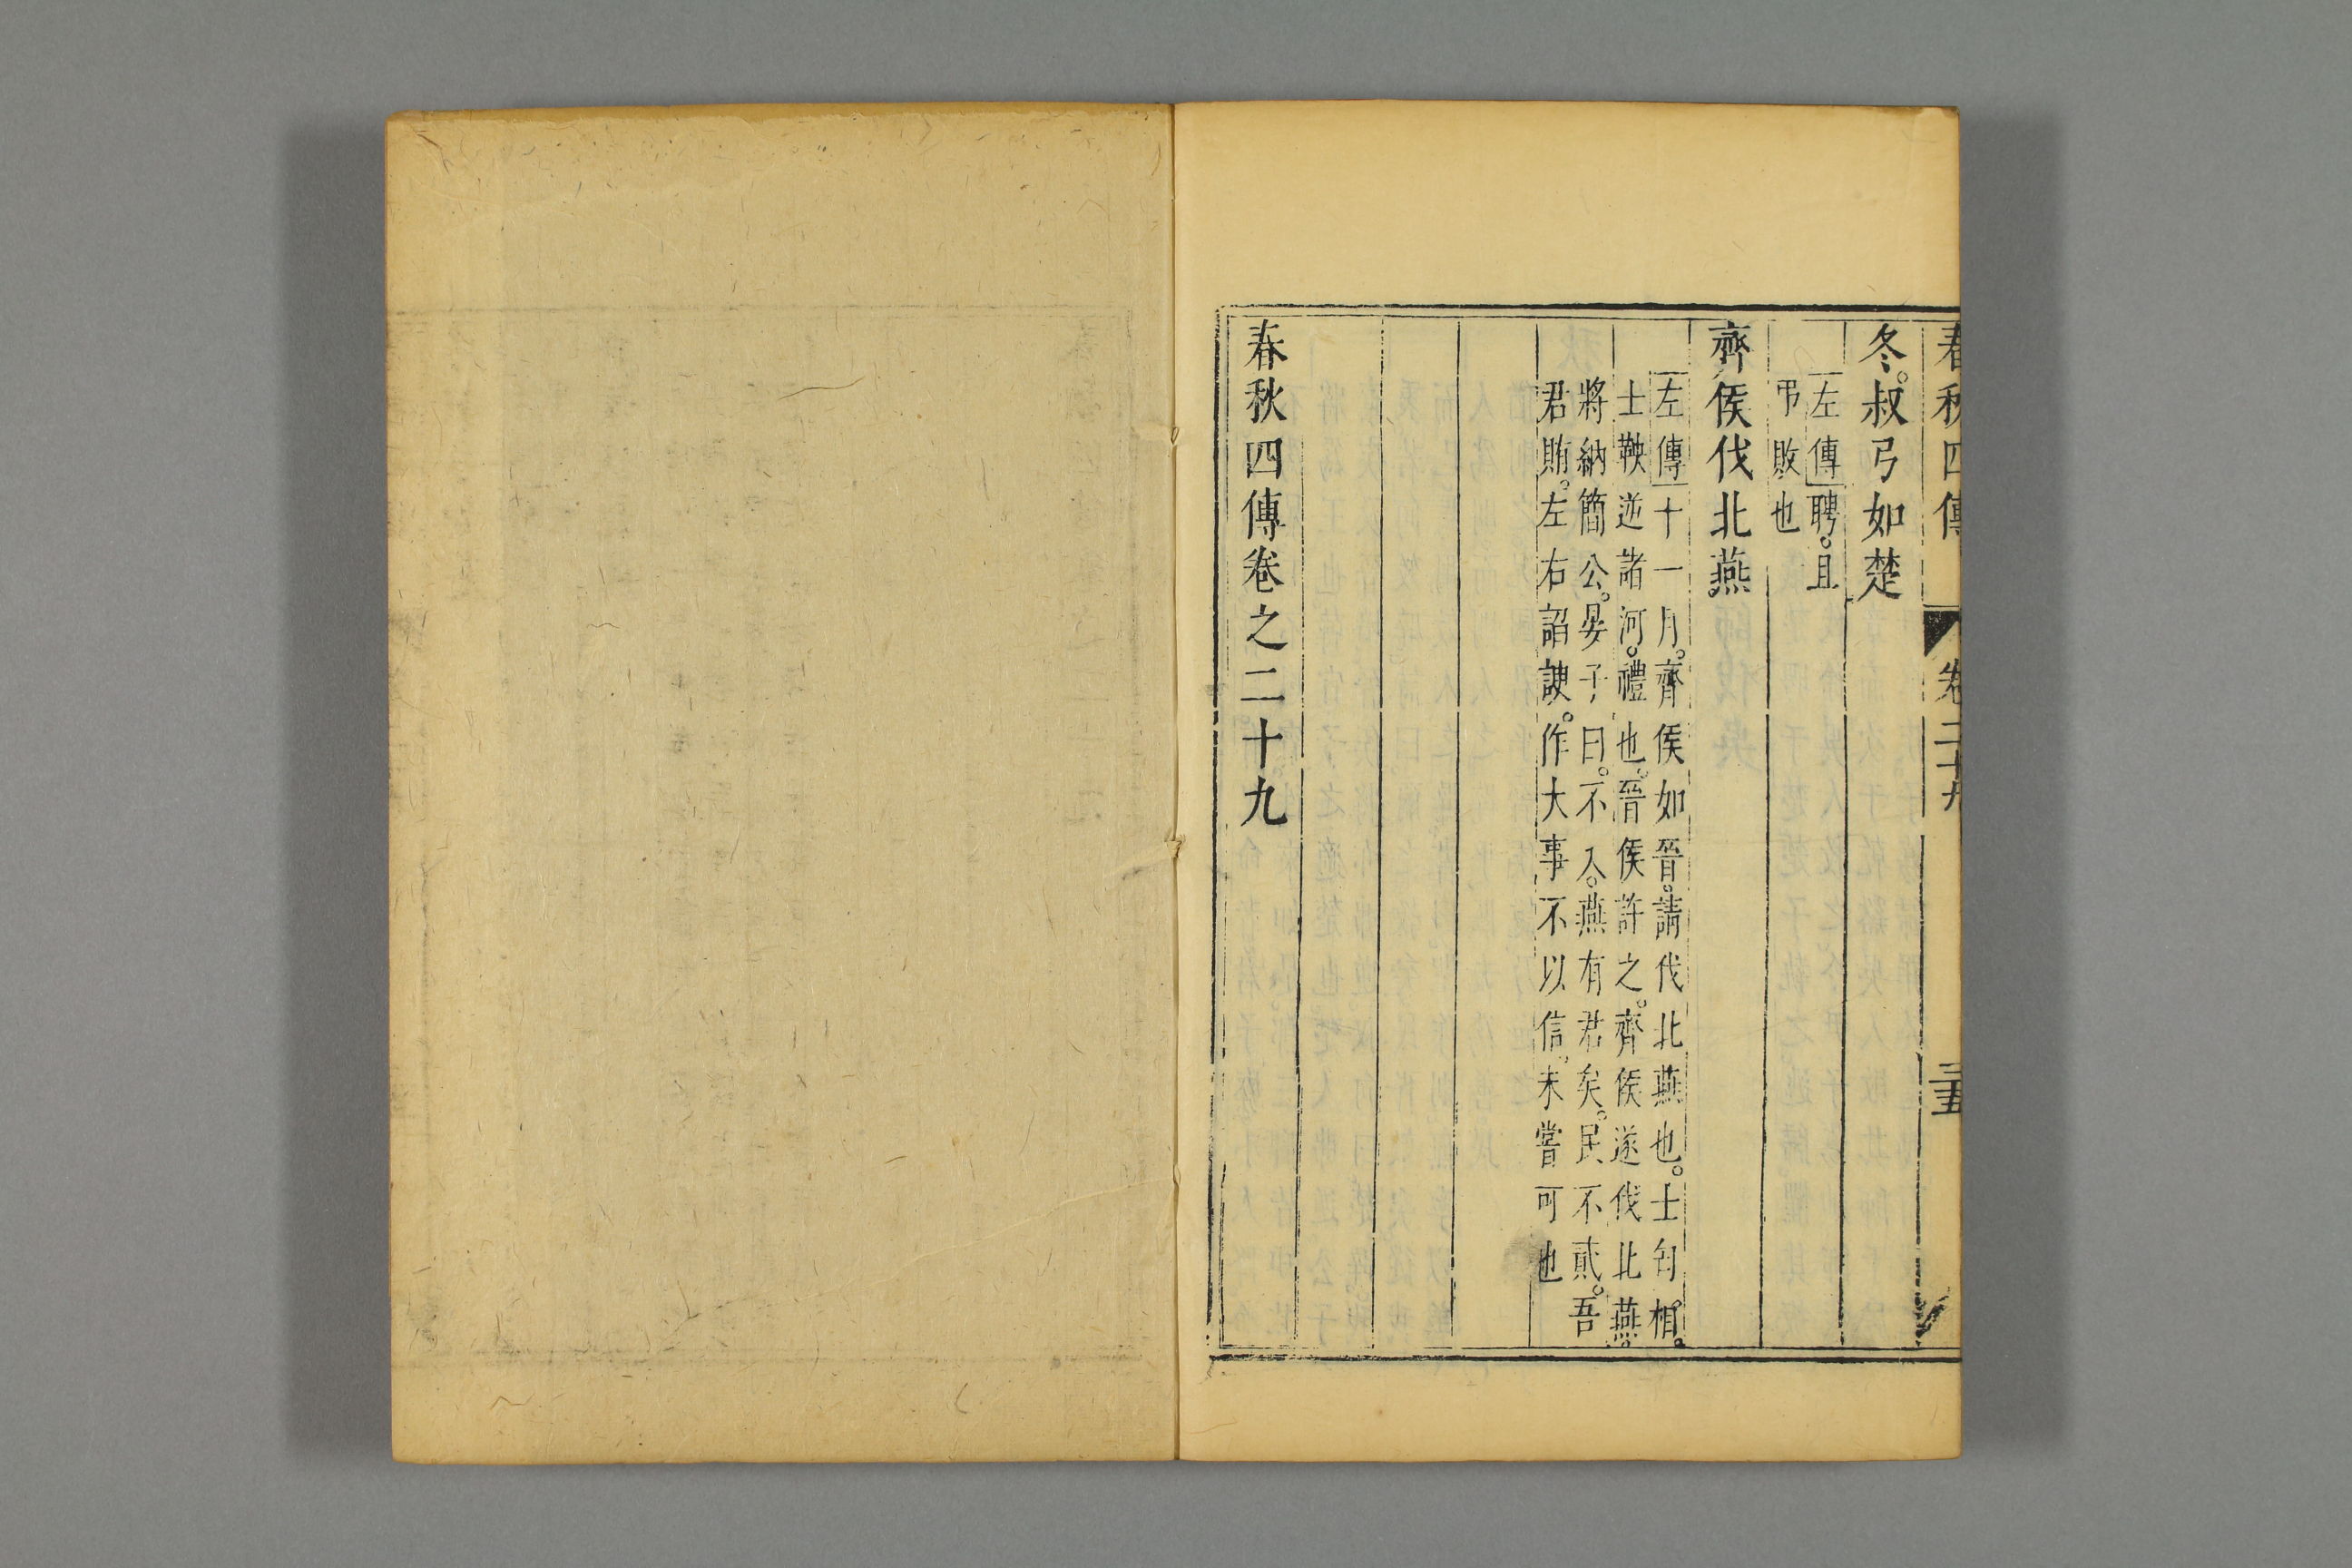 春秋四傳 卷二十九
冬。叔弓如楚
左傳聘。且
弔敗也
齊侯伐北燕
左傳十一月。齊侯如晉。請伐北燕也。士匄相。
士鞅逆諸河。禮也。晉侯許之。齊侯遂伐北燕。
將納簡公。晏子曰。不入。燕有君矣。民不貳。吾
君賄。左右諂諛。作大事不以信。未嘗可也
春秋四傳卷之二十九